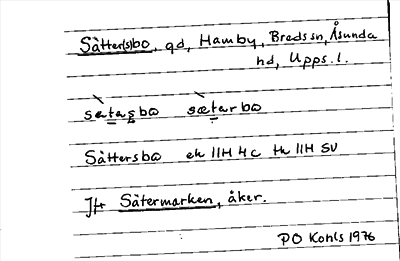 Sätter(s)bo, gd, Hamby, Breds sn, Åsunda
hd, Upps. l.
sætasbω sætarbω
Sättersbo ek 11H 4c tk 11H SV
Jfr Sätermarken, åker.
PO Kohls 1976